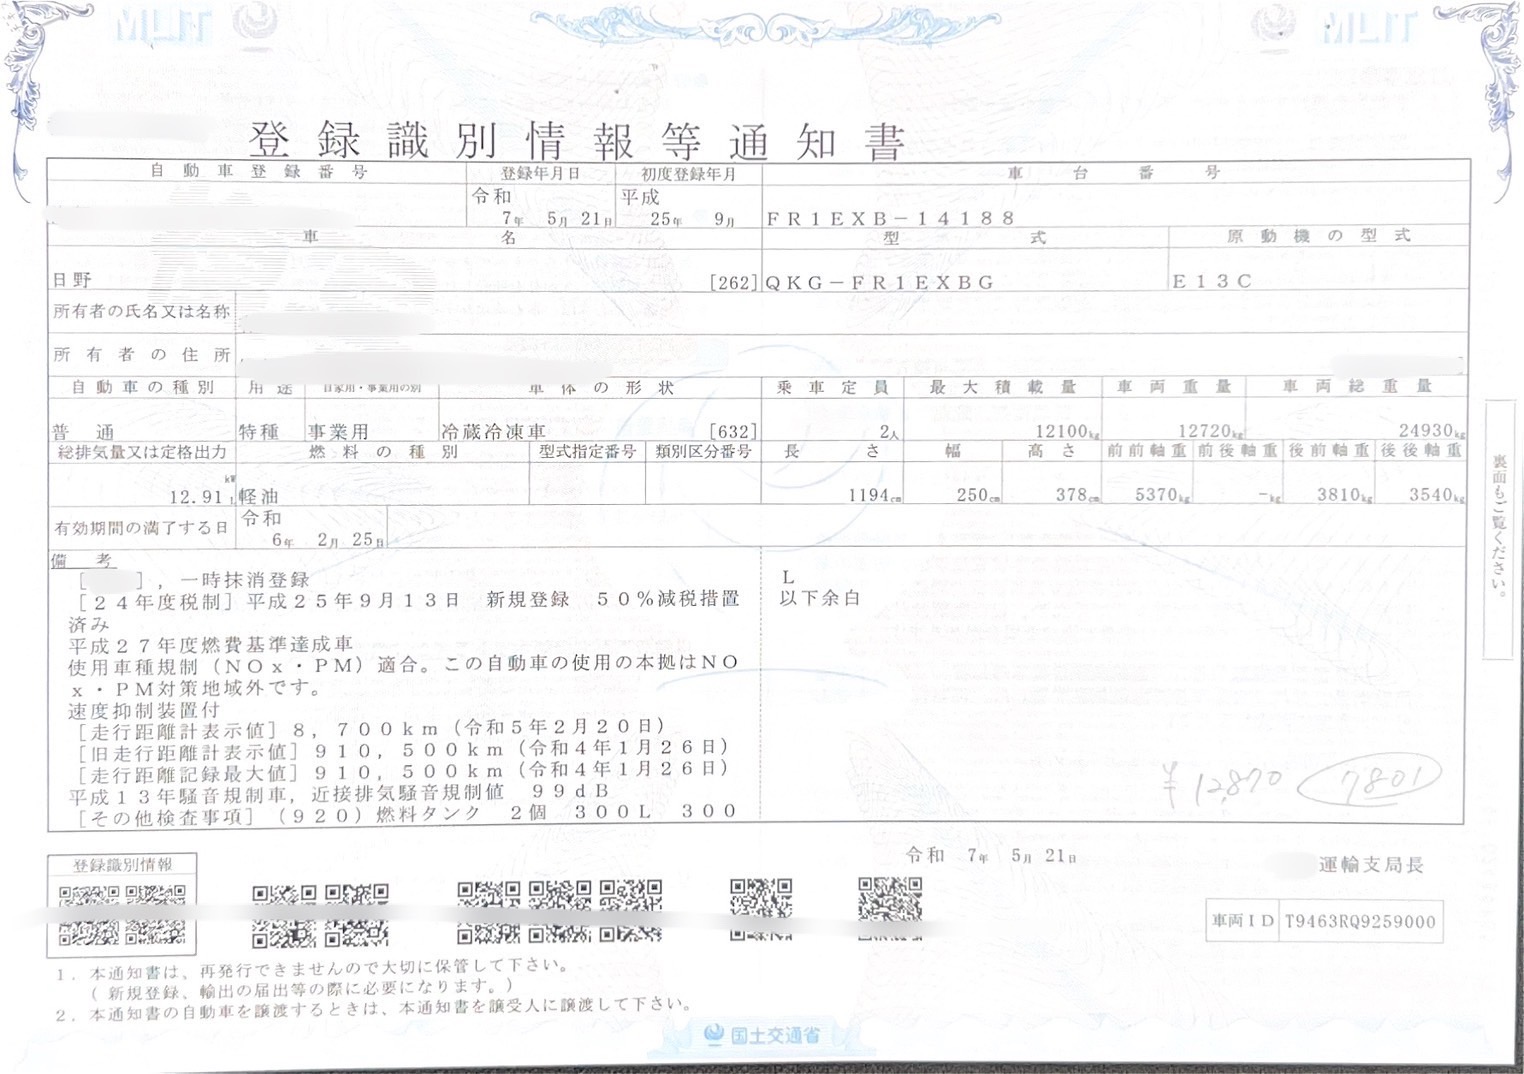 MLIT
MLIT
登録識別情報等通知書
自動車登録番号 登録年月日 初度登録年月 車台番号
令和 平成
7年 5月 21日 25年 9月 FR1EXB-14188
車名 型式 原動機の型式
日野 [262] QKG-FR1EXBG E13C
所有者の氏名又は名称
所有者の住所
自動車の種別 用途 自家用・事業用の別 車体の形状 乗車定員 最大積載量 車両重量 車両総重量
普通 特種 事業用 冷蔵冷凍車 [632] 2人 12100kg 12720kg 24930kg
総排気量又は定格出力 燃料の種別 型式指定番号 類別区分番号 長さ 幅 高さ 前前軸重 前後軸重 後前軸重 後後軸重
kW
12.91L 軽油 1194cm 250cm 378cm 5370kg -kg 3810kg 3540kg
有効期間の満了する日 令和
6年 2月 25日
備考
[ ],一時抹消登録
[24年度税制]平成25年9月13日 新規登録 50%減税措置
済み
平成27年度燃費基準達成車
使用車種規制(NOx・PM)適合。この自動車の使用の本拠はNO
x・PM対策地域外です。
速度抑制装置付
[走行距離計表示値]8,700km(令和5年2月20日)
[旧走行距離計表示値]910,500km(令和4年1月26日)
[走行距離記録最大値]910,500km(令和4年1月26日)
平成13年騒音規制車,近接排気騒音規制値 99dB
[その他検査事項](920)燃料タンク 2個 300L 300
L
以下余白
¥12,870 7801
裏面もご覧ください。
令和 7年 5月 21日
運輸支局長
登録識別情報
車両ID T9463RQ9259000
1.本通知書は、再発行できませんので大切に保管して下さい。
(新規登録、輸出の届出等の際に必要になります。)
2.本通知書の自動車を譲渡するときは、本通知書を譲受人に譲渡して下さい。
国土交通省